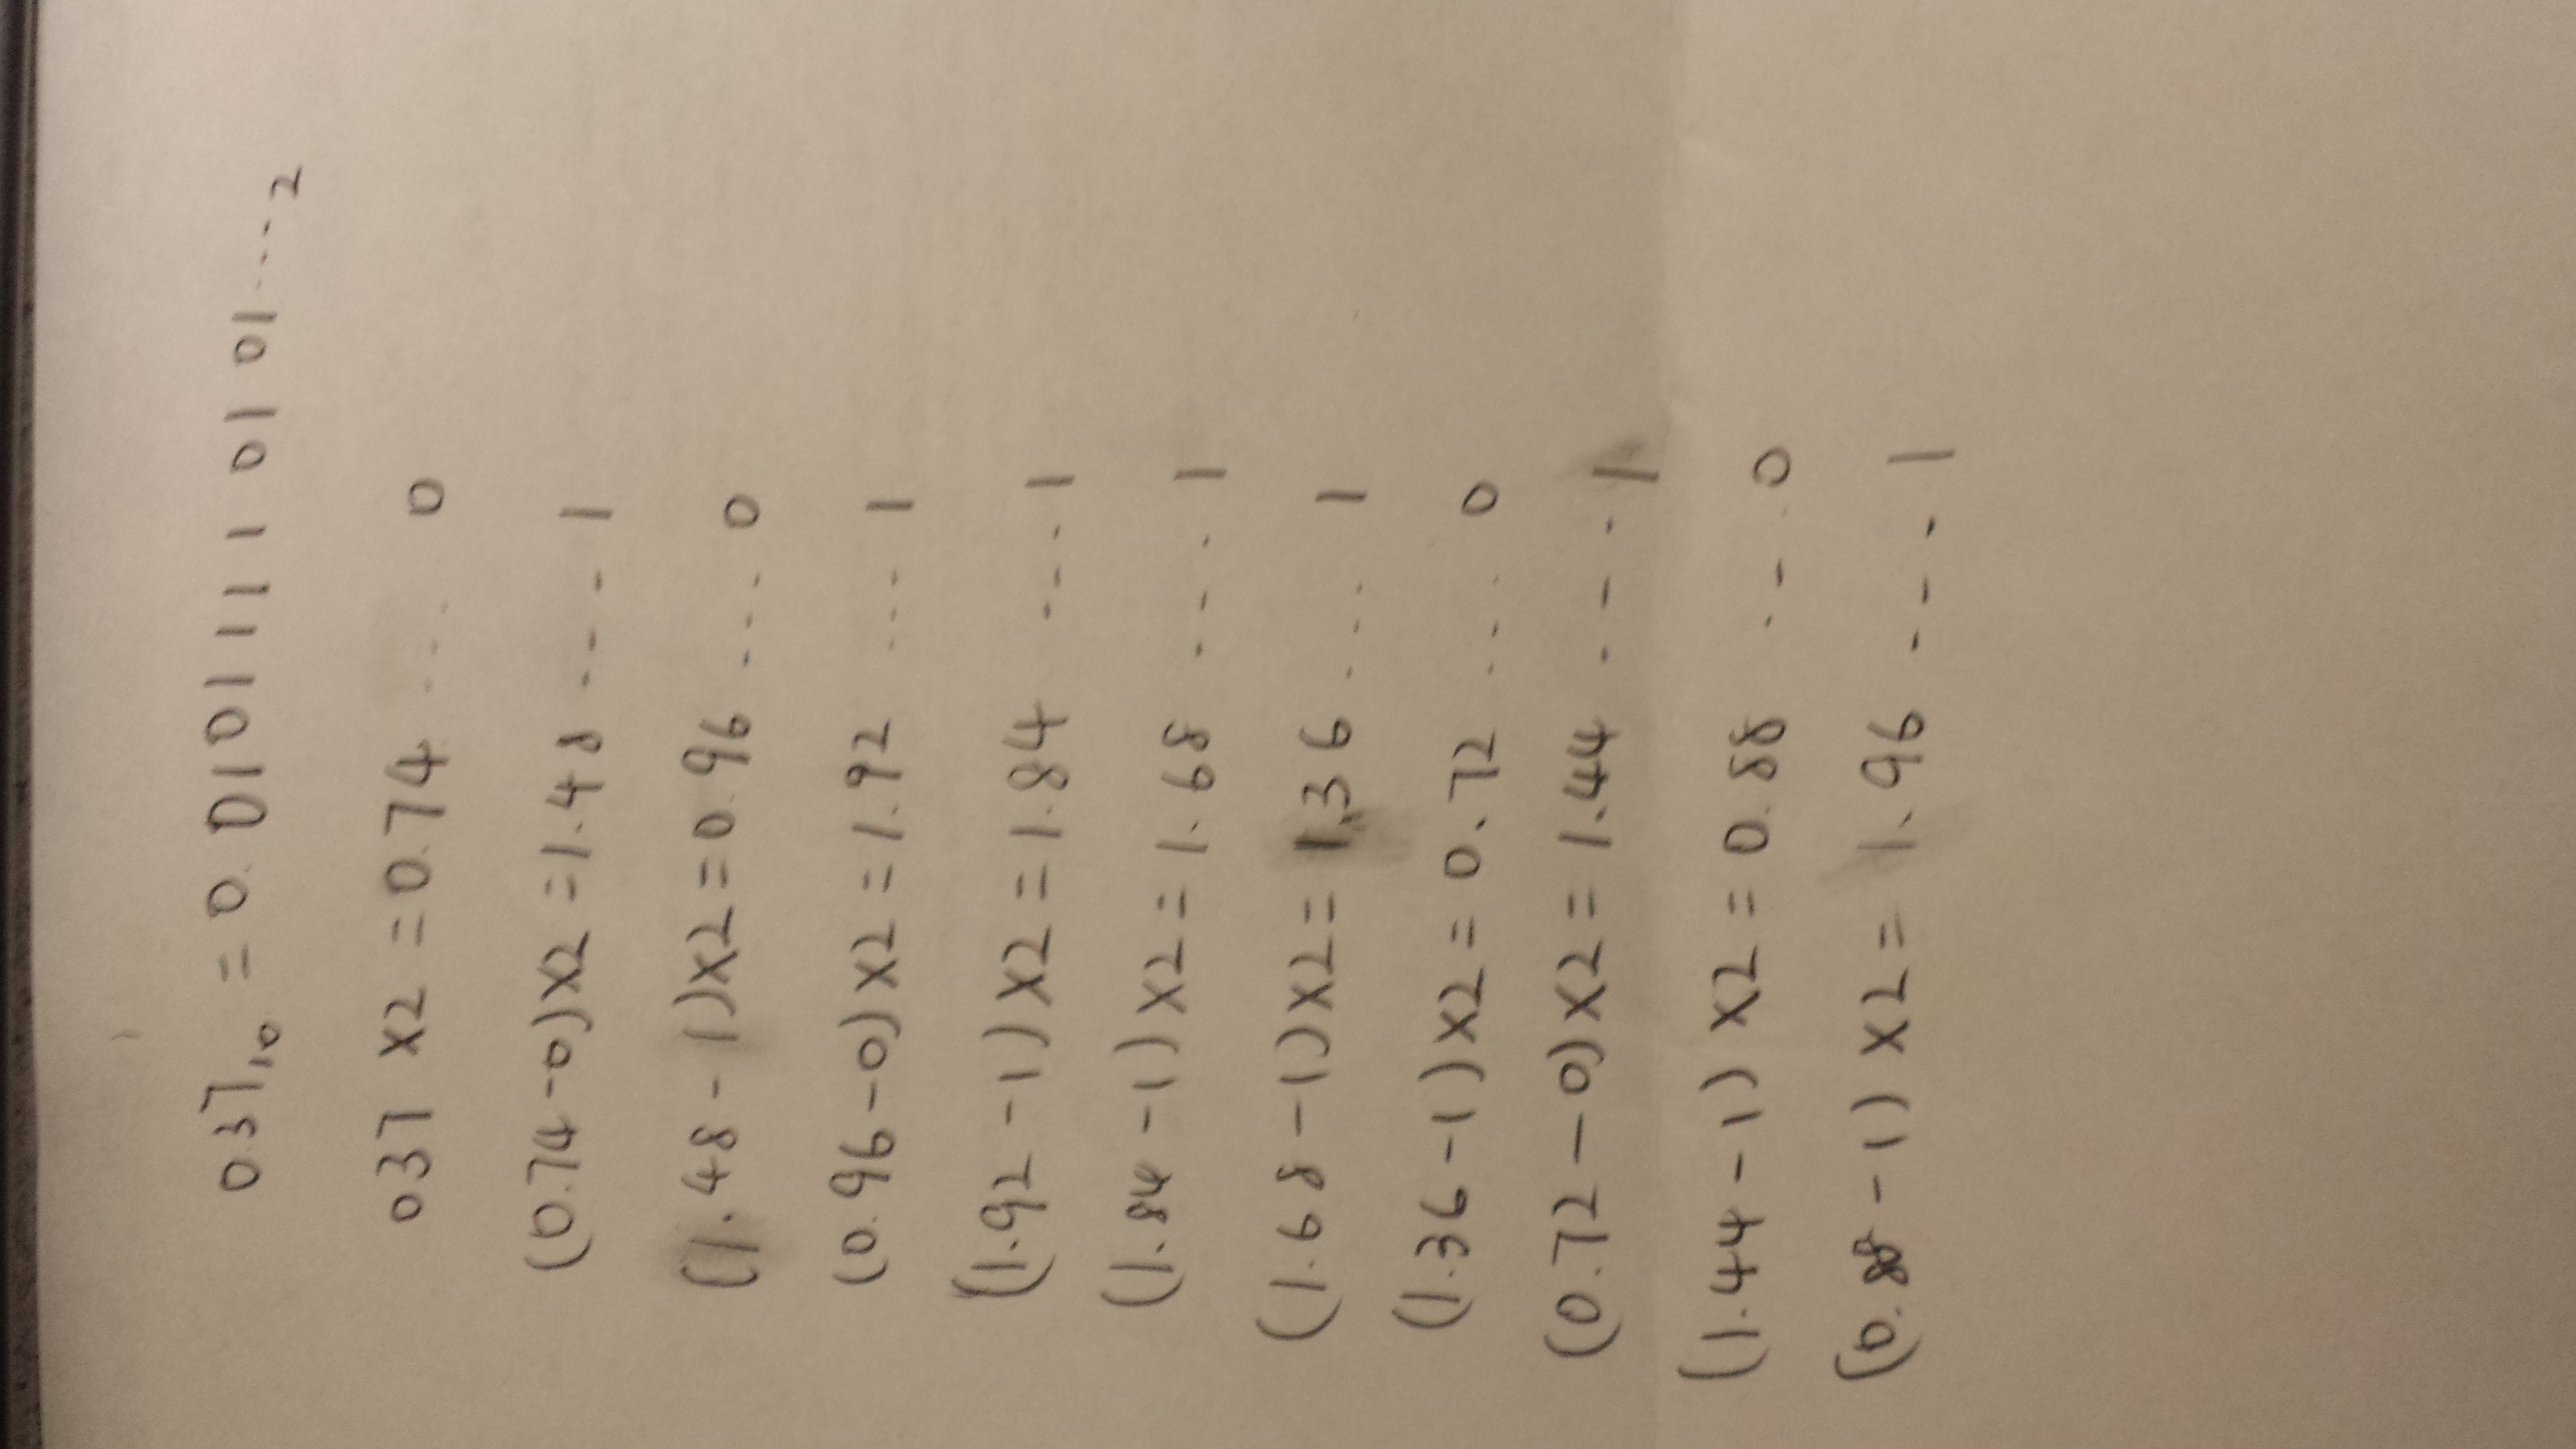 0.37₁₀ = 0.01011110101...₂
0.37 x2 = 0.74 ... 0
(0.74-0)x2 = 1.48 ... 1
(1.48-1)x2 = 0.96 ... 0
(0.96-0)x2 = 1.92 ... 1
(1.92-1)x2 = 1.84 ... 1
(1.84-1)x2 = 1.68 ... 1
(1.68-1)x2 = 1.36 ... 1
(1.36-1)x2 = 0.72 ... 0
(0.72-0)x2 = 1.44 ... 1
(1.44-1)x2 = 0.88 ... 0
(0.88-1)x2 = 1.96 ... 1